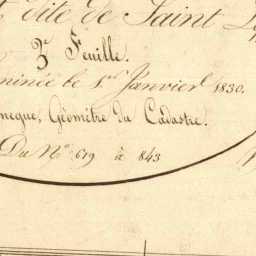 dite de Saint
3e Feuille.
minée le 1er Janvier 1830.
Géomètre du Cadastre.
Du No. 679 à 843